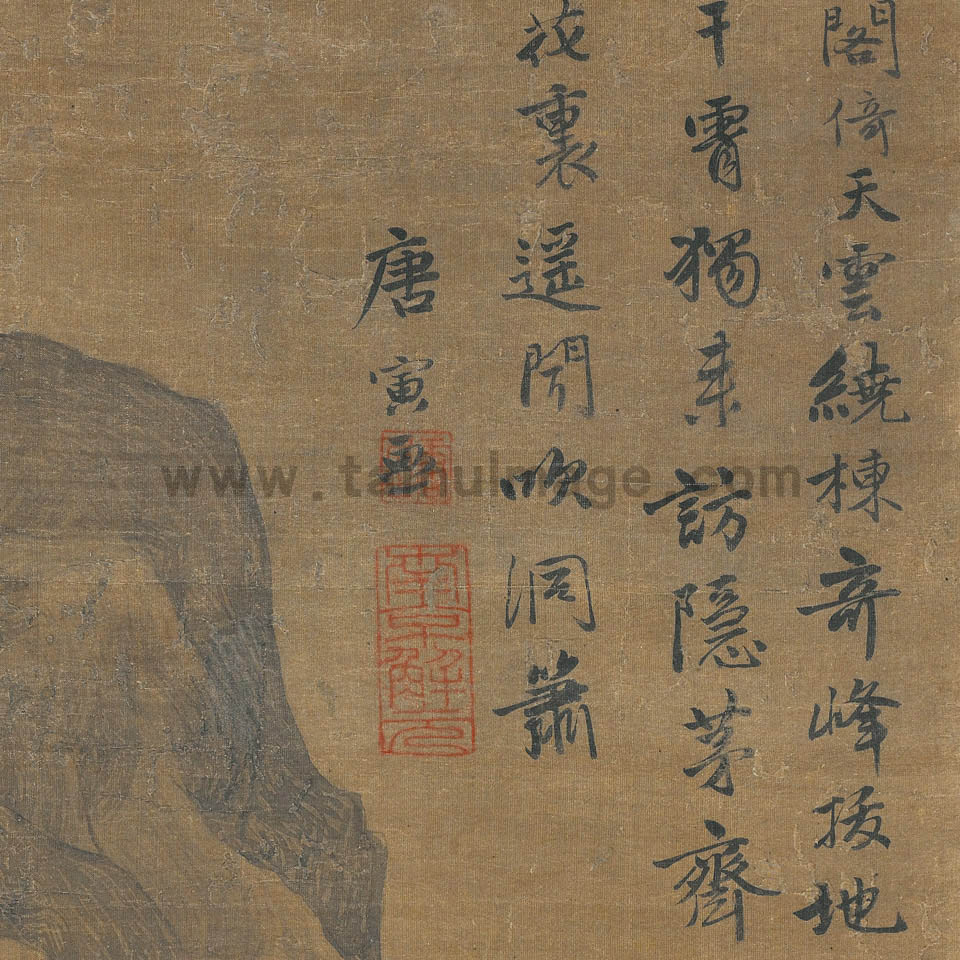 閣倚天雲繞棟竒峰拔地
干霄獨来訪隱茅齋
花裏遥聞吹洞簫
唐寅畫
南京解元
www.taihuimage.com